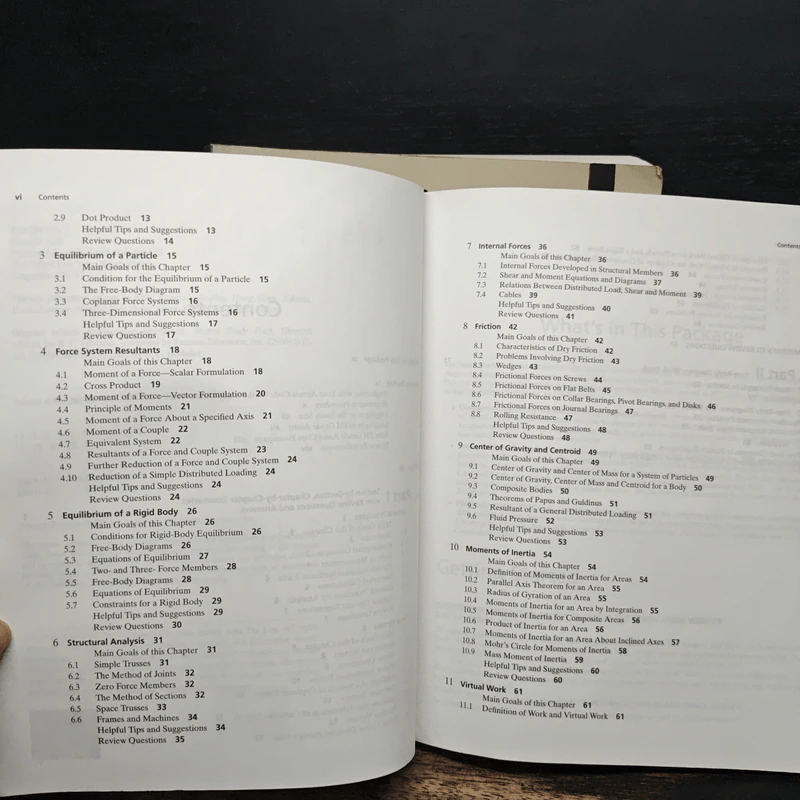 vi Contents
2.9 Dot Product 13
Helpful Tips and Suggestions 13
Review Questions 14
3 Equilibrium of a Particle 15
Main Goals of this Chapter 15
3.1 Condition for the Equilibrium of a Particle 15
3.2 The Free-Body Diagram 15
3.3 Coplanar Force Systems 16
3.4 Three-Dimensional Force Systems 16
Helpful Tips and Suggestions 17
Review Questions 17
4 Force System Resultants 18
Main Goals of this Chapter 18
4.1 Moment of a Force—Scalar Formulation 18
4.2 Cross Product 19
4.3 Moment of a Force—Vector Formulation 20
4.4 Principle of Moments 21
4.5 Moment of a Force About a Specified Axis 21
4.6 Moment of a Couple 22
4.7 Equivalent System 22
4.8 Resultants of a Force and Couple System 23
4.9 Further Reduction of a Force and Couple System 24
4.10 Reduction of a Simple Distributed Loading 24
Helpful Tips and Suggestions 24
Review Questions 24
5 Equilibrium of a Rigid Body 26
Main Goals of this Chapter 26
5.1 Conditions for Rigid-Body Equilibrium 26
5.2 Free-Body Diagrams 26
5.3 Equations of Equilibrium 27
5.4 Two- and Three- Force Members 28
5.5 Free-Body Diagrams 28
5.6 Equations of Equilibrium 29
5.7 Constraints for a Rigid Body 29
Helpful Tips and Suggestions 29
Review Questions 30
6 Structural Analysis 31
Main Goals of this Chapter 31
6.1 Simple Trusses 31
6.2 The Method of Joints 32
6.3 Zero Force Members 32
6.4 The Method of Sections 32
6.5 Space Trusses 33
6.6 Frames and Machines 34
Helpful Tips and Suggestions 34
Review Questions 35
Contents
7 Internal Forces 36
Main Goals of this Chapter 36
7.1 Internal Forces Developed in Structural Members 36
7.2 Shear and Moment Equations and Diagrams 37
7.3 Relations Between Distributed Load, Shear and Moment 39
7.4 Cables 39
Helpful Tips and Suggestions 40
Review Questions 41
8 Friction 42
Main Goals of this Chapter 42
8.1 Characteristics of Dry Friction 42
8.2 Problems Involving Dry Friction 43
8.3 Wedges 43
8.4 Frictional Forces on Screws 44
8.5 Frictional Forces on Flat Belts 45
8.6 Frictional Forces on Collar Bearings, Pivot Bearings, and Disks 46
8.7 Frictional Forces on Journal Bearings 47
8.8 Rolling Resistance 47
Helpful Tips and Suggestions 48
Review Questions 48
9 Center of Gravity and Centroid 49
Main Goals of this Chapter 49
9.1 Center of Gravity and Center of Mass for a System of Particles 49
9.2 Center of Gravity, Center of Mass and Centroid for a Body 50
9.3 Composite Bodies 50
9.4 Theorems of Papus and Guldinus 51
9.5 Resultant of a General Distributed Loading 51
9.6 Fluid Pressure 52
Helpful Tips and Suggestions 53
Review Questions 53
10 Moments of Inertia 54
Main Goals of this Chapter 54
10.1 Definition of Moments of Inertia for Areas 54
10.2 Parallel Axis Theorem for an Area 55
10.3 Radius of Gyration of an Area 55
10.4 Moments of Inertia for an Area by Integration 55
10.5 Moments of Inertia for Composite Areas 56
10.6 Product of Inertia for an Area 56
10.7 Moments of Inertia for an Area About Inclined Axes 57
10.8 Mohr's Circle for Moments of Inertia 58
10.9 Mass Moment of Inertia 59
Helpful Tips and Suggestions 60
Review Questions 60
11 Virtual Work 61
Main Goals of this Chapter 61
11.1 Definition of Work and Virtual Work 61